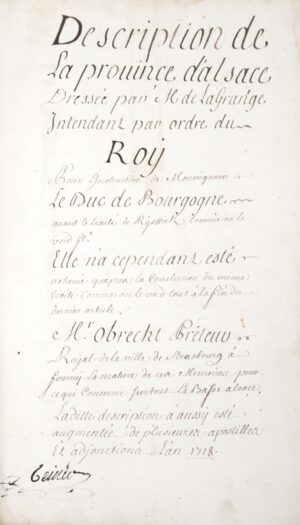 Description de
La prouince d'alsace
Dressée par Mr. de LaGrange
Intendant par ordre du
Roÿ
Pour Instruction de Monseigneur
Le Duc de Bourgogne,
auant le traité de Ryswick comme on le
void
Elle n'a cependant esté
acheué qu'apres la Conclusion du mème
traité comme on le void tous à la fin du
dernier article.
Mr. Obrecht Préteur
Roÿal de la ville de Strasbourg à
fourny la matiere de ces Memoires pour
ce qui Concerne surtout la Basse alsace.
La ditte description à aussy esté
augmentée de plusieures apostilles
Et adjonctions L'an 1718.